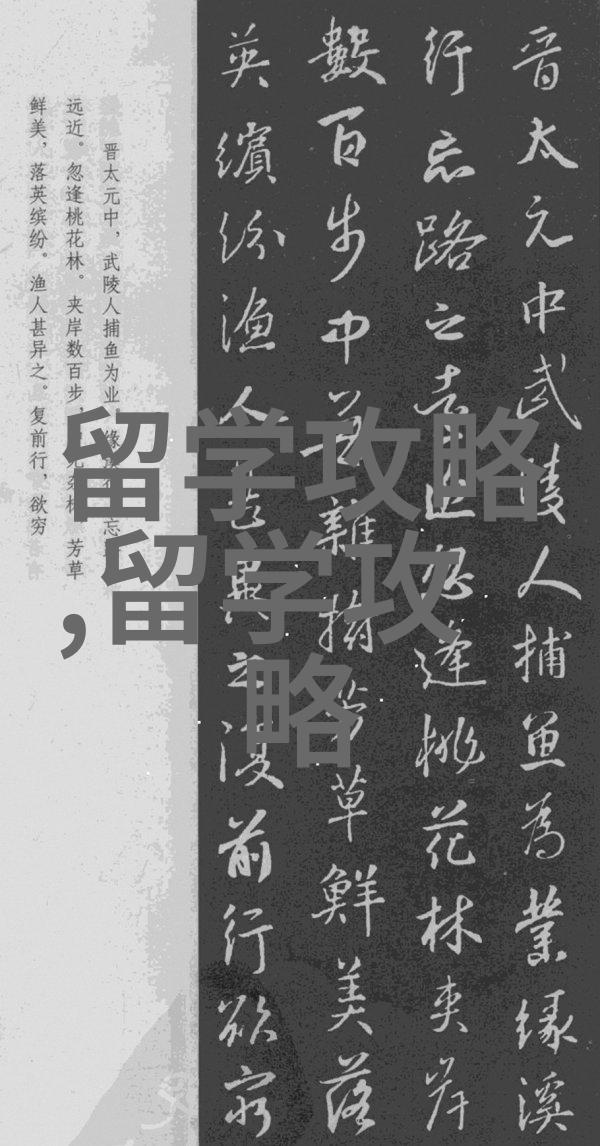 晋太元中武陵人捕魚為業緣溪
行忘路之遠近忽逢桃花林夾岸
數百步中無雜樹芳草鮮美落
英繽紛漁人甚異之復前行欲窮
晋太元中，武陵人捕鱼为业 缘溪行 忘
远近。忽逢桃花林。夹岸数百步，中无杂树 芳草
鲜美，落英缤纷。渔人甚异之。复前行，欲穷
留学攻略
,留学攻
略